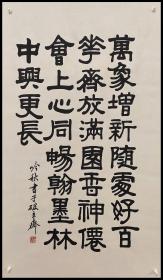 萬象增新隨處好百
華齊放滿園香神僊
會上心同暢翰墨林
中興更長
吟秋書于